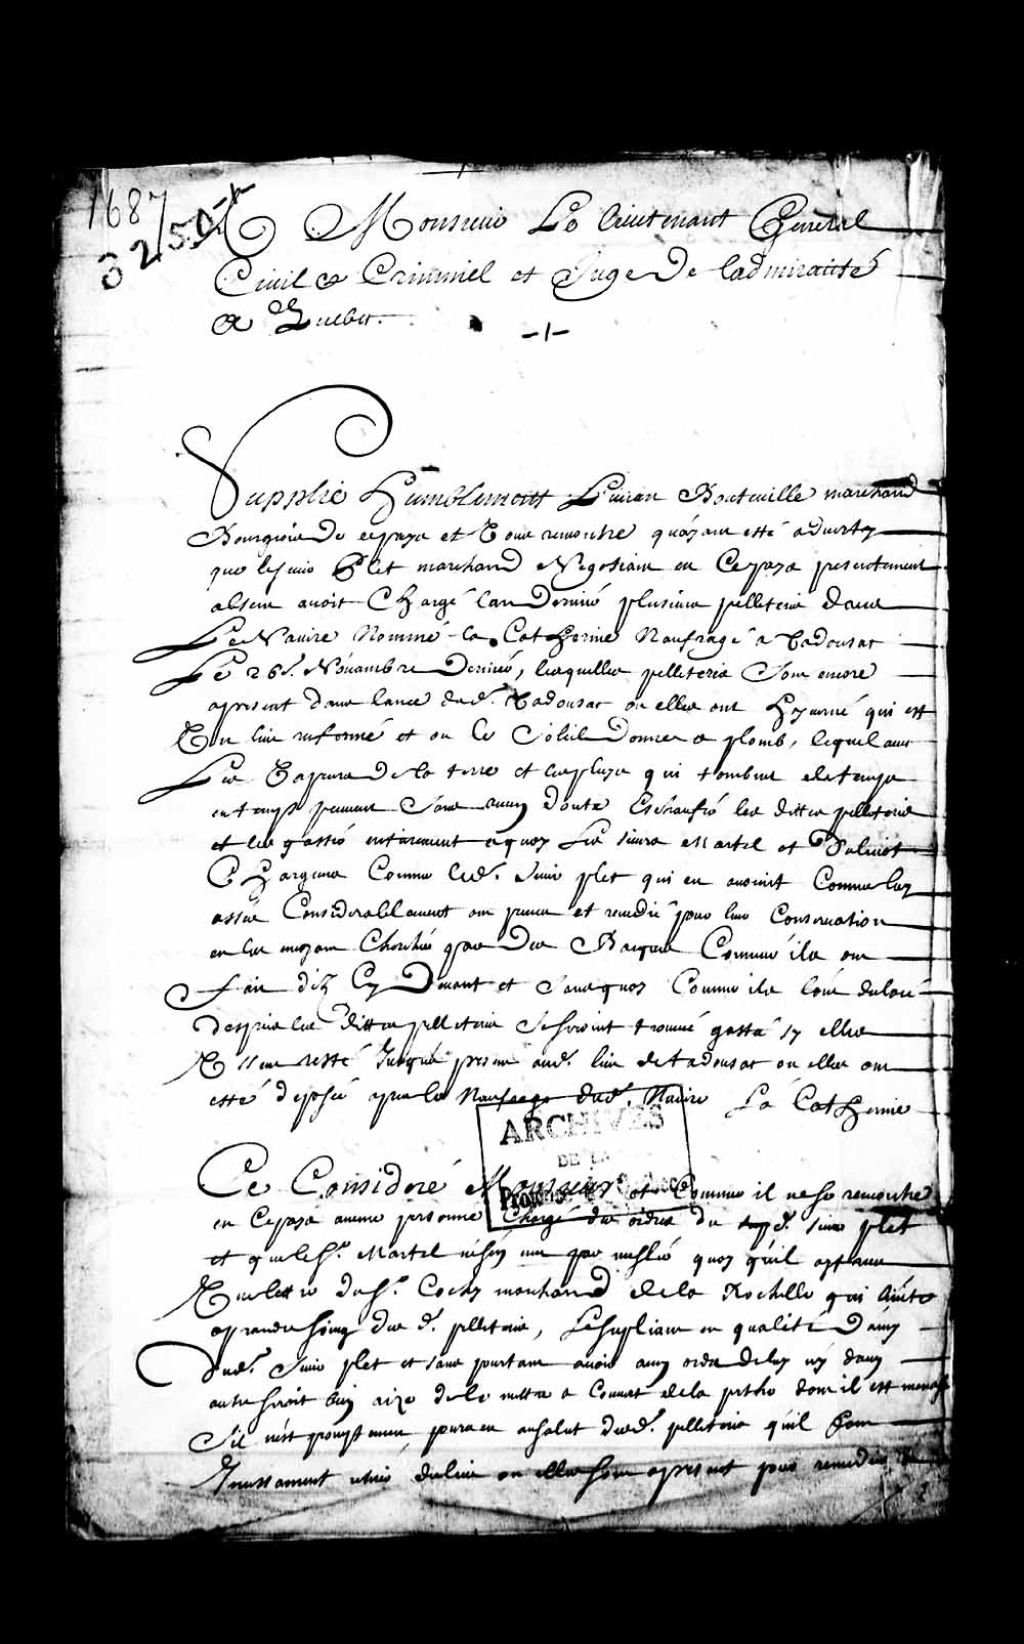 1687
250
A Monsieur Le lieutenant General
Civil & Criminel et Juge De ladmirauté
A Quebec.
Supplie Humblement Lucien Bouteuille marchand
Bourgeois De ce pays et Vous remontre quayant esté aduerty
que le sieur Plet marchand Negotiant en Ce pays presentement
absent auoit Chargé lan Dernier plusieurs pelleteries dans
Le Nauire Nommé la Catherine Naufragé a Tadousac
Le 26e. Nouambre Dernier, lesquelles pelleteries Sont encore
apresent dans lance dud. Tadousac ou elles ont Hyuerné qui est
Un lieu enfermé et ou le Soleil Donne a plomb, lequel auec
Les Vapeurs De la terre et les pluyes qui tombent de temps
en temps peuuent Sans aucun doute Eschauffé les dittes pelleteries
et les gasté entierement a quoy Les sieurs Martel et
Chargeurs Comme led. Sieur plet qui en auoient Comme luy
assés Considerablement ont preueu et remedié pour leur Conseruation
en les enuoyant Chercher par Des Barques Comme ils ont
fait dix Cy Deuant et Sans quoy Comme ils lont declaré
despuis les dittes pelleteries Se seroient trouué gasté sy elles
Estoient resté Jusqua present aud. lieu de tadousac ou elles ont
esté deposés apres le Naufrage dud. Nauire La Catherine
Ce Consideré Monsieur et Comme il ne se remontre
en Ce pays aucune personne Chargé des ordres du sieur plet
et que le Sr. Martel ne sen ueut pas mesler quoy quil ayt eu
Une lettre du Sr. marchand de la Rochelle qui
a prendre soing des d. pelleteries, Le supliant en qualité Damy
Dud. Sieur plet et sans pourtant auoir aucun ordre de luy ny daucun
autre seroit bien aize de le mettre a Couuert de la perte dont il est menassé
Sil nest promptement pourueu au salut desd. pelleteries quil
Incessament retirer du lieu ou elles sont apresent pour remedier
ARCHIVES
DE LA